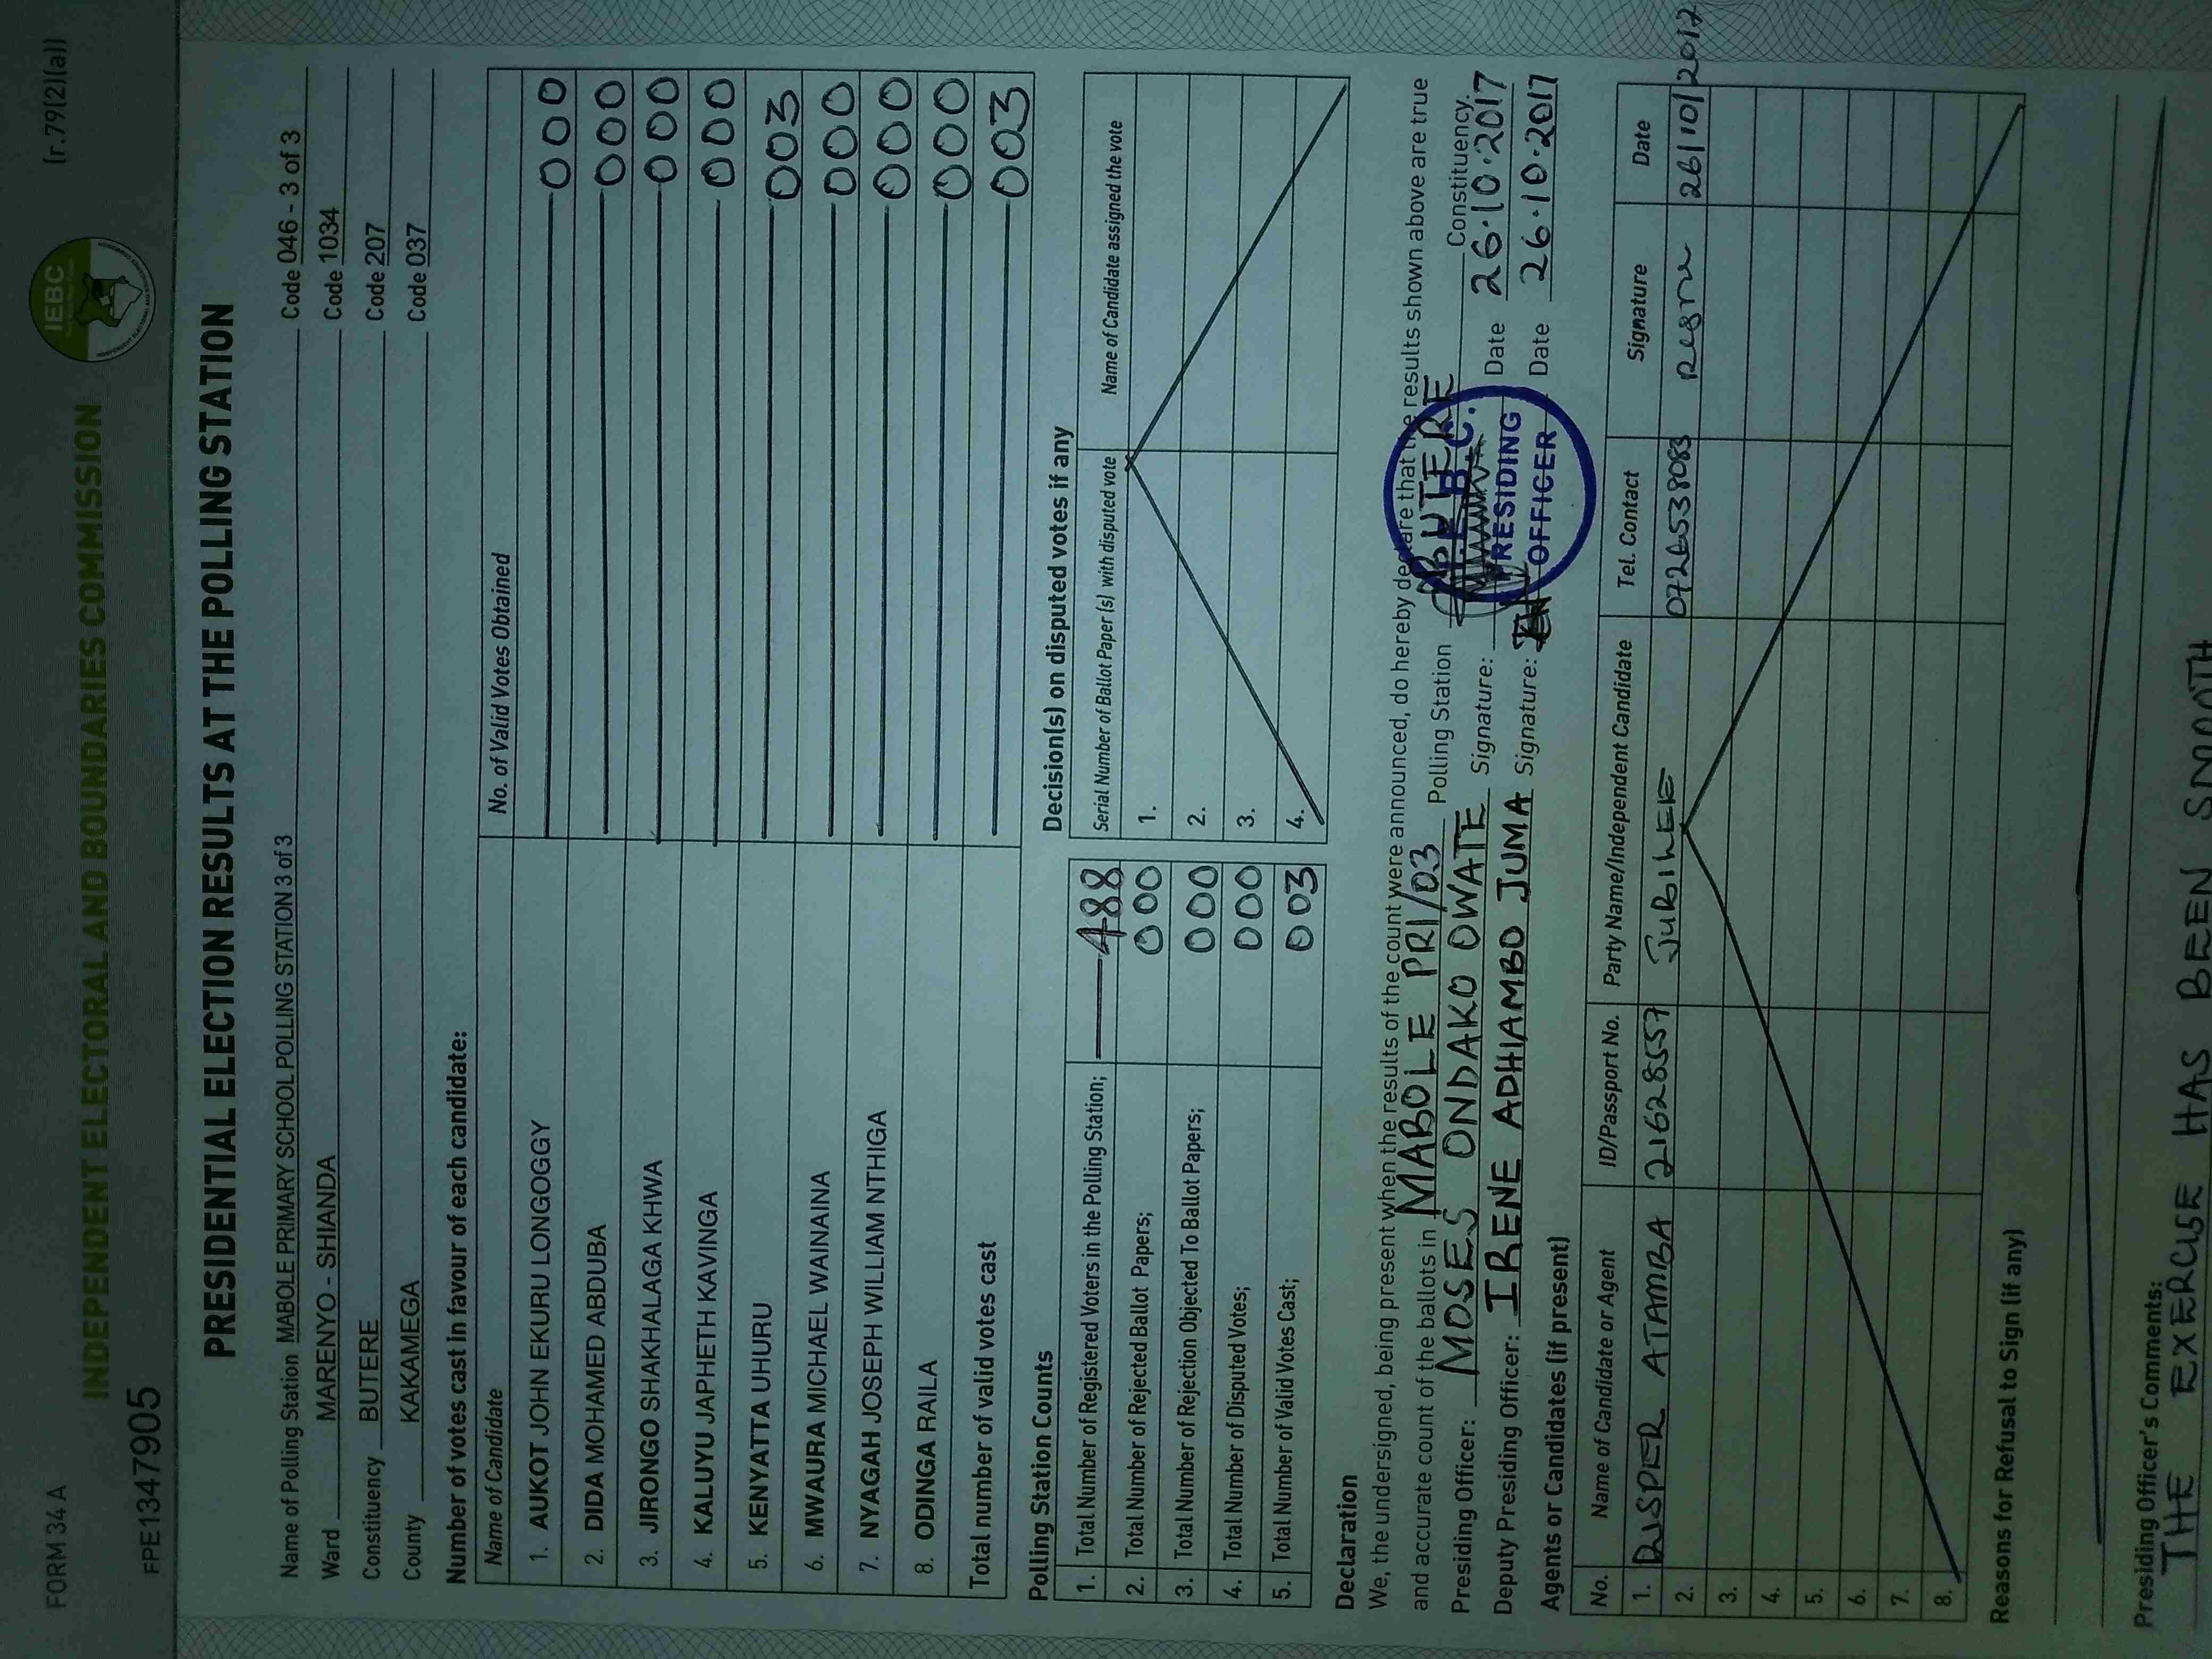 FORM 34 A
(r.79(2)(a))
INDEPENDENT ELECTORAL AND BOUNDARIES COMMISSION
IEBC
FPE1347905
PRESIDENTIAL ELECTION RESULTS AT THE POLLING STATION
Name of Polling Station MABOLE PRIMARY SCHOOL POLLING STATION 3 of 3 Code 046 - 3 of 3
Ward MARENYO - SHIANDA Code 1034
Constituency BUTERE Code 207
County KAKAMEGA Code 037
Number of votes cast in favour of each candidate:
Name of Candidate No. of Valid Votes Obtained
1. AUKOT JOHN EKURU LONGOGGY 000
2. DIDA MOHAMED ABDUBA 000
3. JIRONGO SHAKHALAGA KHWA 000
4. KALUYU JAPHETH KAVINGA 000
5. KENYATTA UHURU 003
6. MWAURA MICHAEL WAINAINA 000
7. NYAGAH JOSEPH WILLIAM NTHIGA 000
8. ODINGA RAILA 000
Total number of valid votes cast 003
Polling Station Counts
1. Total Number of Registered Voters in the Polling Station; 488
2. Total Number of Rejected Ballot Papers; 000
3. Total Number of Rejection Objected To Ballot Papers; 000
4. Total Number of Disputed Votes; 000
5. Total Number of Valid Votes Cast; 003
Decision(s) on disputed votes if any
Serial Number of Ballot Paper (s) with disputed vote Name of Candidate assigned the vote
1.
2.
3.
4.
Declaration
We, the undersigned, being present when the results of the count were announced, do hereby declare that the results shown above are true
and accurate count of the ballots in MABOLE PRI/03 Polling Station BUTERE Constituency.
Presiding Officer: MOSES ONDAKO OWATE Signature: Date 26.10.2017
Deputy Presiding Officer: IRENE ADHIAMBO JUMA Signature: Date 26.10.2017
PRESIDING
OFFICER
Agents or Candidates (if present)
No. Name of Candidate or Agent ID/Passport No. Party Name/Independent Candidate Tel. Contact Signature Date
1. DISPER ATAMBA 21628557 JUBILEE 0726538083 26/10/2017
2.
3.
4.
5.
6.
7.
8.
Reasons for Refusal to Sign (if any)
Presiding Officer's Comments:
THE EXERCISE HAS BEEN SMOOTH